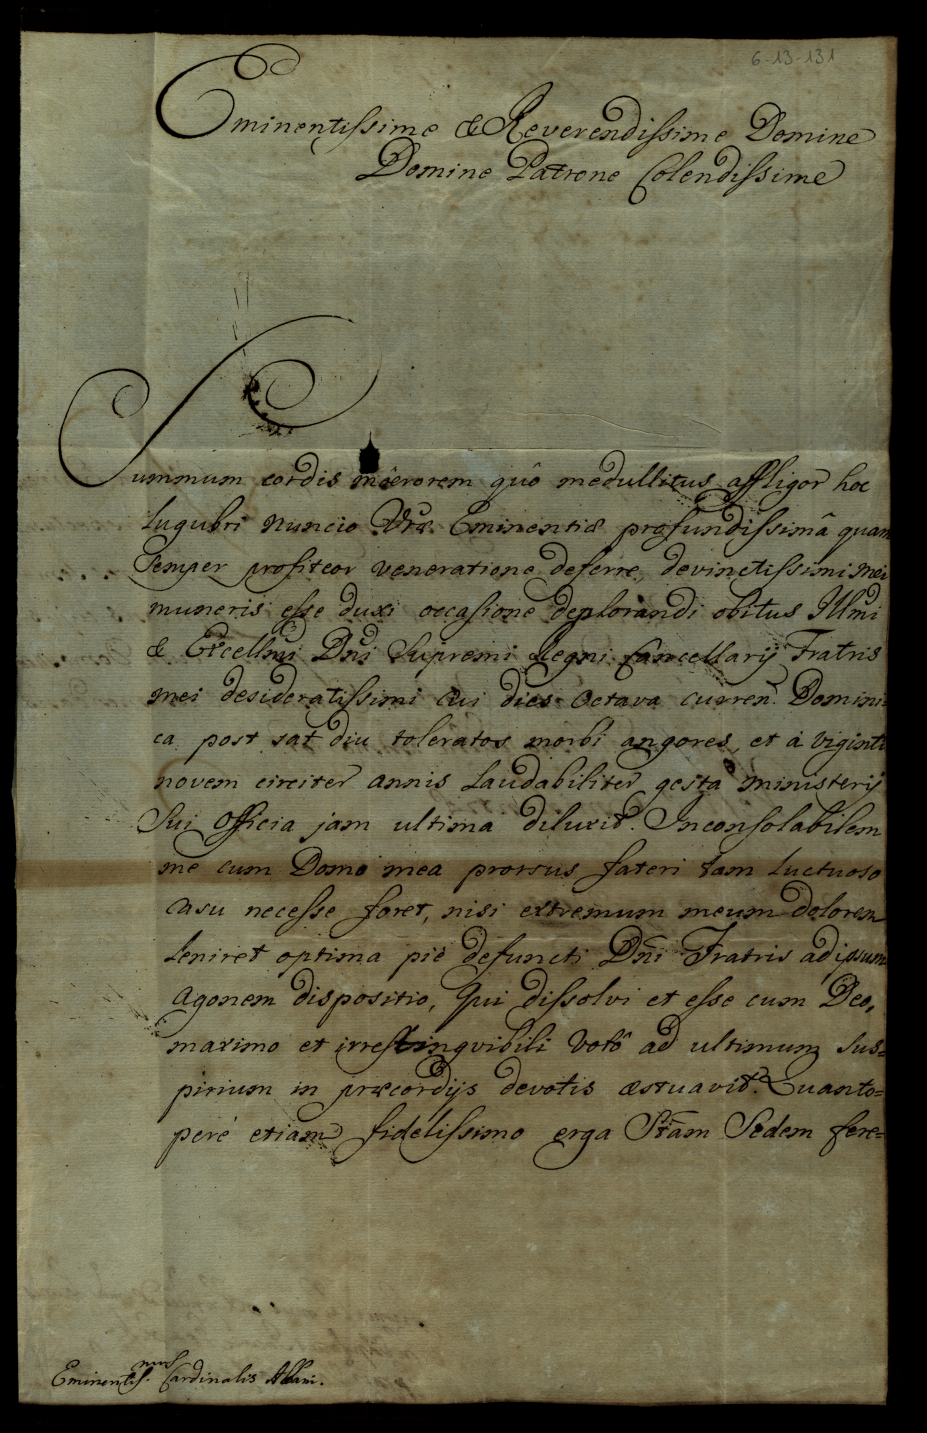 6-13-131
Eminentissime & Reverendissime Domine
Domine Patrone Colendissime
Summum cordis mœrorem quô medullitus affligor hoc
lugubri nuncio Vræ Eminentiæ profundissimâ quam
semper profiteor veneratione deferre, devinctissimi mei
muneris esse duxi occasione deplorandi obitus Illmi
& Excellmi Dni Supremi Regni Cancellarij Fratris
mei desideratissimi cui dies octava curren. Domini-
ca post sat diu toleratos morbi angores, et à viginti
novem circiter annis laudabiliter gesta ministerij
sui officia jam ultima diluxit. Inconsolabilem
me cum Domo mea prorsus fateri tam luctuoso
casu necesse foret, nisi extremum meum dolorem
leniret optima piè defuncti Dni Fratris ad ipsum
agonem dispositio, qui dissolvi et esse cum Deo,
maximo et irrestingvibili votô ad ultimum sus-
pirium in præcordijs devotis æstuavit. Quanto-
perè etiam fidelissimo erga Stam Sedem fere-
Eminentiss.mus Cardinalis Albani.